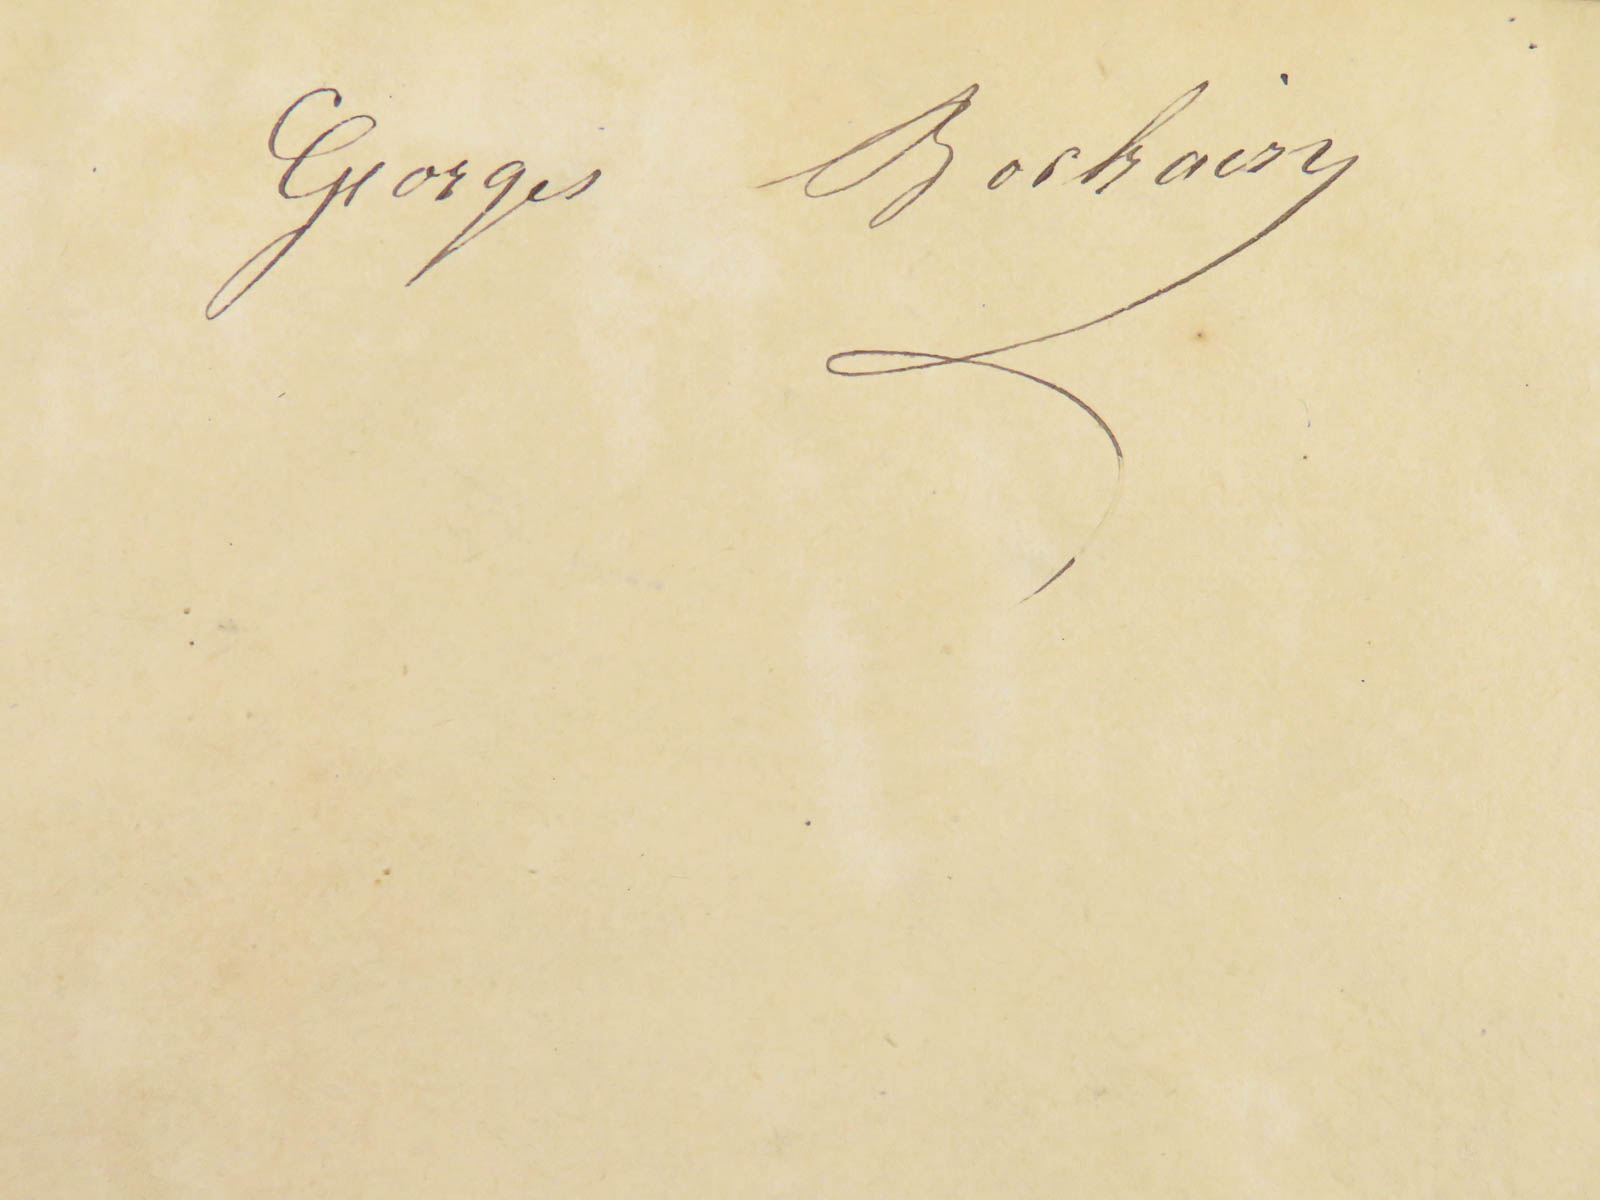 Georges Bochairy